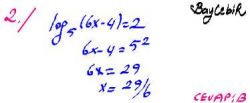 BayCebir
2./ log₅(6x-4)=2
6x-4=5²
6x=29
x=29/6
CEVAP:B